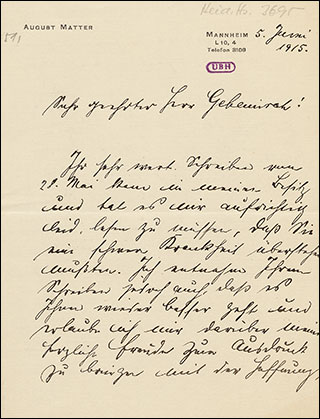 Heid. Hs. 3695
AUGUST MATTER
51,
MANNHEIM 5. Juni
L 10, 4
1915.
Telefon 3108
UBH
Sehr geehrter Herr Geheimrat!
Ihr sehr wert. Schreiben vom
29. Mai kam in meinen Besitz
und tat es mir aufrichtig
leid, lesen zu müssen, daß Sie
eine schwere Krankheit überstehen
mußten. Ich entnehme Ihrem
Schreiben jedoch auch, daß es
Ihnen wieder besser geht und
erlaube ich mir darüber meine
herzliche Freude zum Ausdruck
zu bringen mit der Hoffnung,